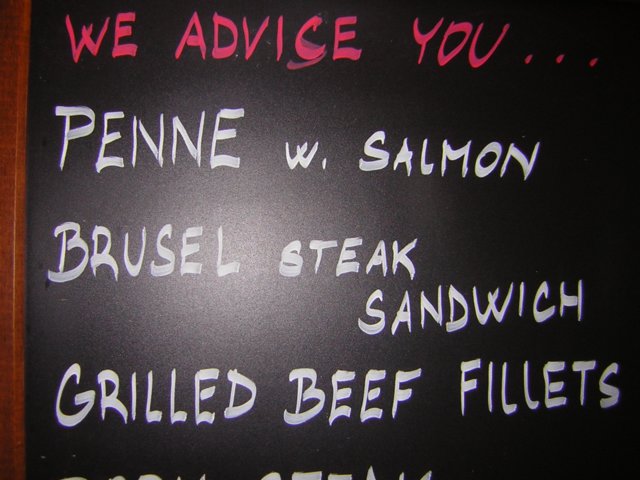 WE ADVICE YOU...
PENNE W. SALMON
BRUSEL STEAK
SANDWICH
GRILLED BEEF FILLETS
STEAK